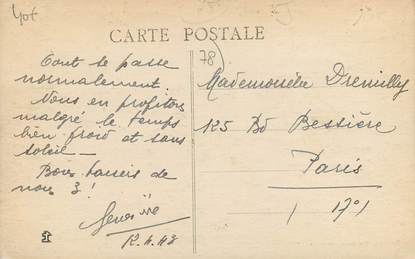 CARTE POSTALE
Tout se passe
normalement.
Nous en profitons
malgré le temps
bien froid et sans
soleil —
Bons baisers de
nous 3 !
78
Mademoiselle
125 Bd Bessière
Paris
17e